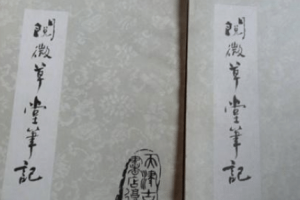 閱微草堂筆記
閱微草堂筆記
天津古
書店